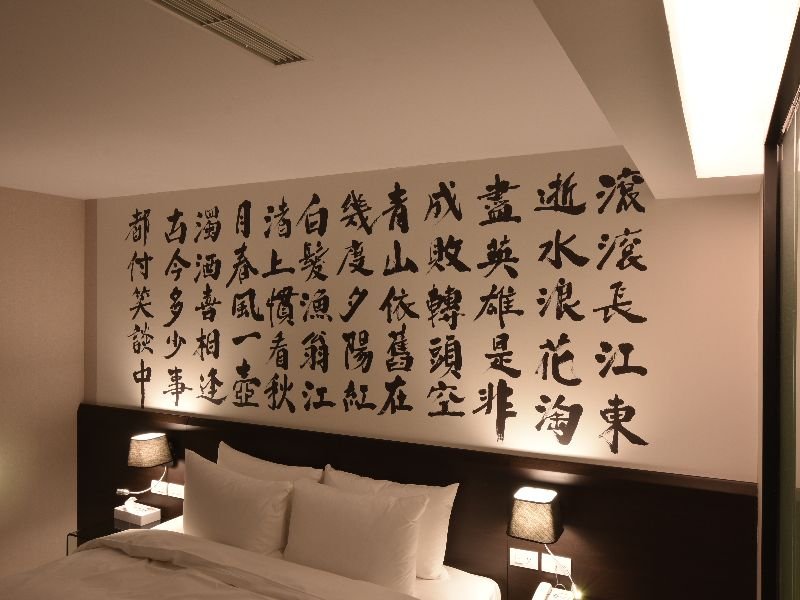 滾滾長江東
逝水浪花淘
盡英雄是非
成敗轉頭空
青山依舊在
幾度夕陽紅
白髮漁翁江
渚上慣看秋
月春風一壺
濁酒喜相逢
古今多少事
都付笑談中